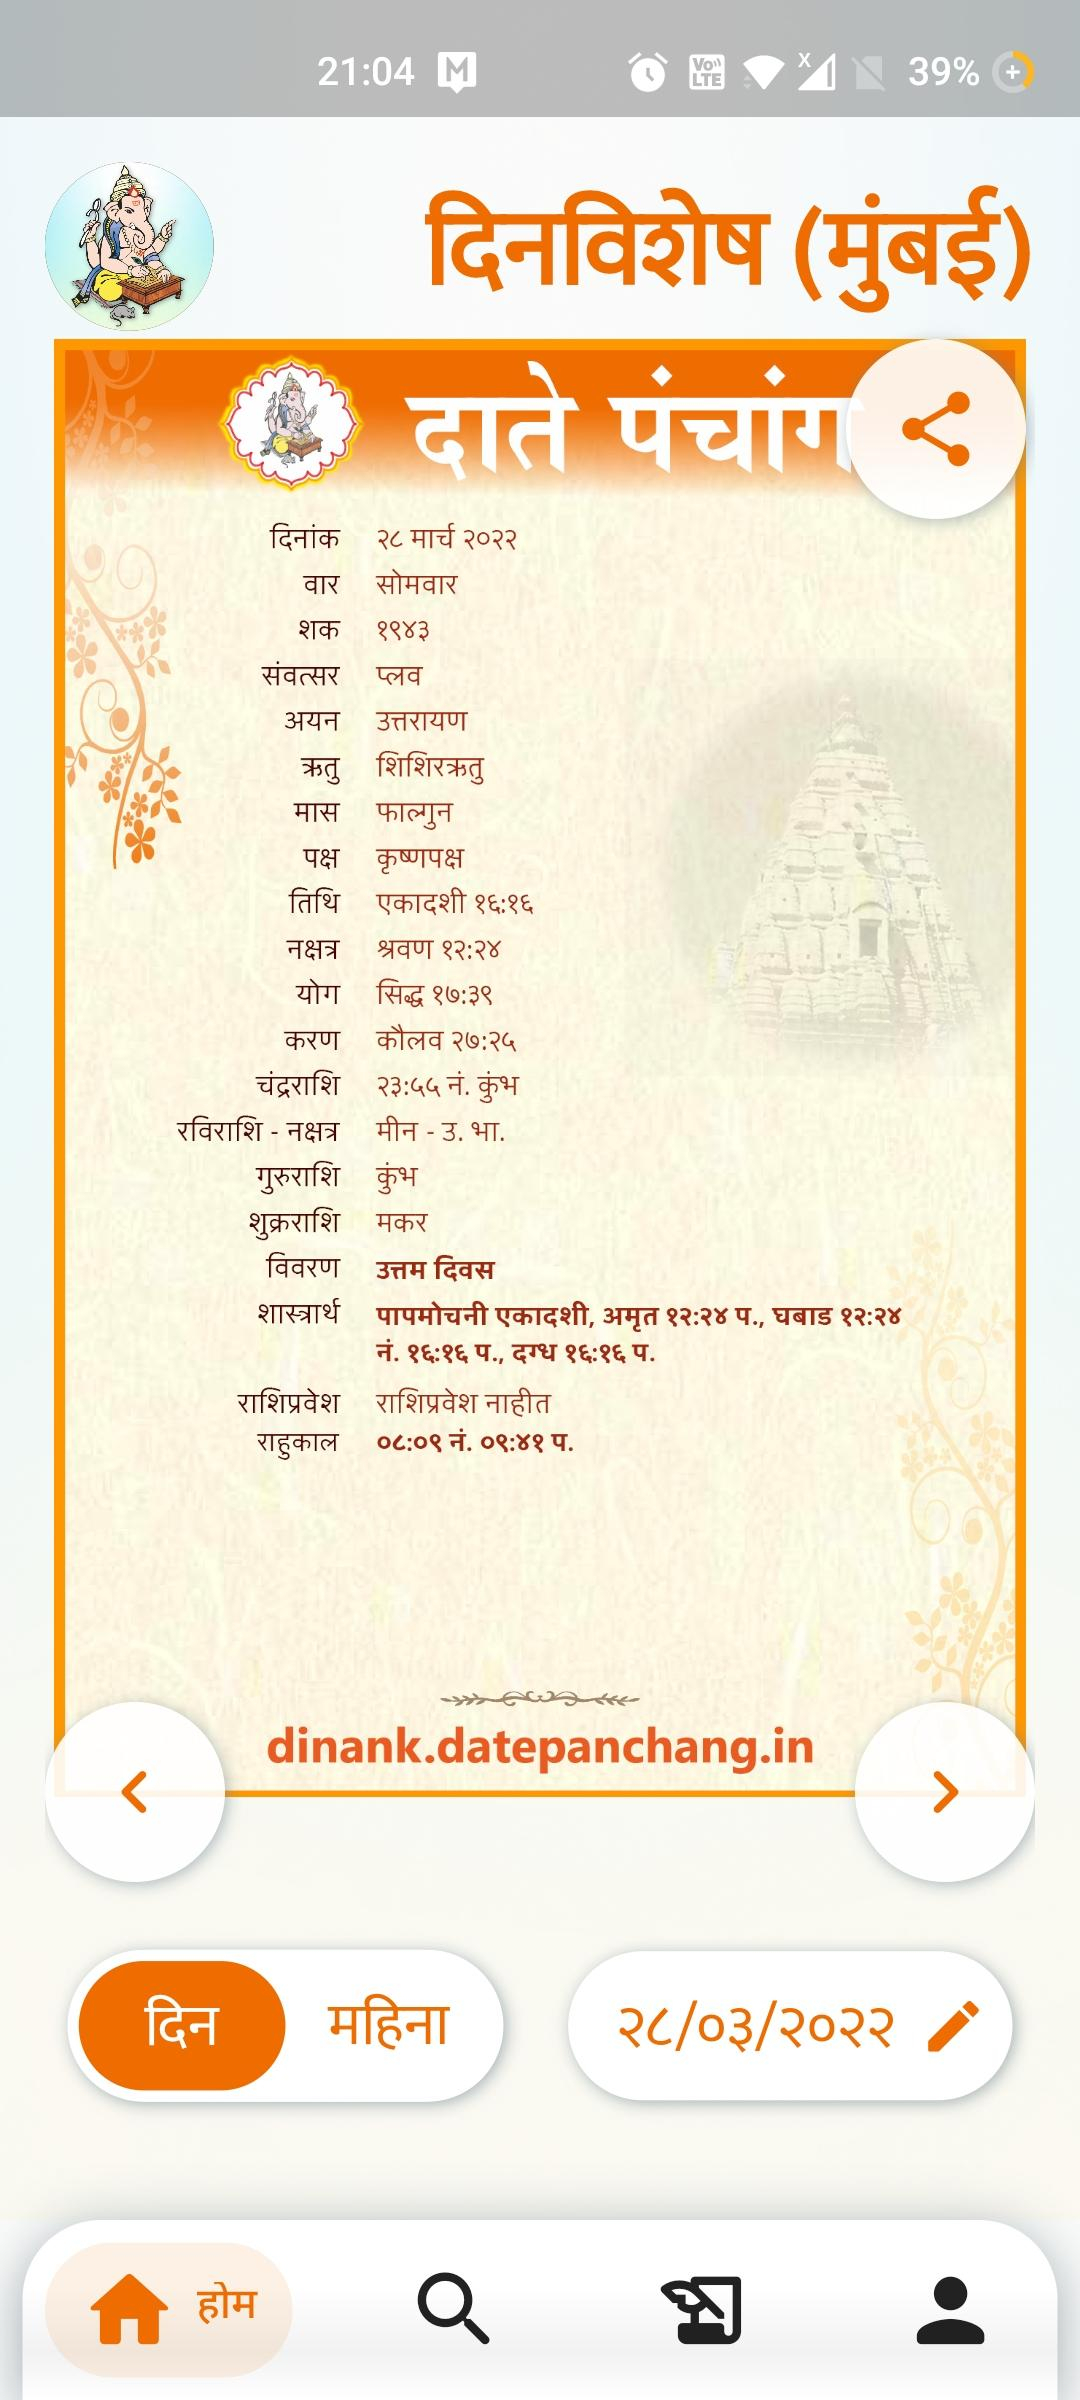 21:04
VoLTE
39%
दिनविशेष (मुंबई)
दाते पंचांग
दिनांक २८ मार्च २०२२
वार सोमवार
शक १९४३
संवत्सर प्लव
अयन उत्तरायण
ऋतु शिशिरऋतु
मास फाल्गुन
पक्ष कृष्णपक्ष
तिथि एकादशी १६:१६
नक्षत्र श्रवण १२:२४
योग सिद्ध १७:३९
करण कौलव २७:२५
चंद्रराशि २३:५५ नं. कुंभ
रविराशि - नक्षत्र मीन - उ. भा.
गुरुराशि कुंभ
शुक्रराशि मकर
विवरण उत्तम दिवस
शास्त्रार्थ पापमोचनी एकादशी, अमृत १२:२४ प., घबाड १२:२४
नं. १६:१६ प., दग्ध १६:१६ प.
राशिप्रवेश राशिप्रवेश नाहीत
राहुकाल ०८:०९ नं. ०९:४१ प.
dinank.datepanchang.in
दिन महिना २८/०३/२०२२
होम